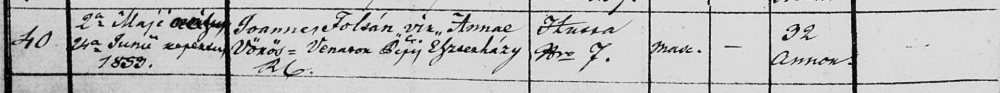 40
2a Maji occisus
24a Junii repertus
1853.
Joannes Tolsán "vir" Annae
Vörös = Venator Ppis Eszterházy
R. C.
Hussa
Nro 7.
masc.
—
32
Annor.
—